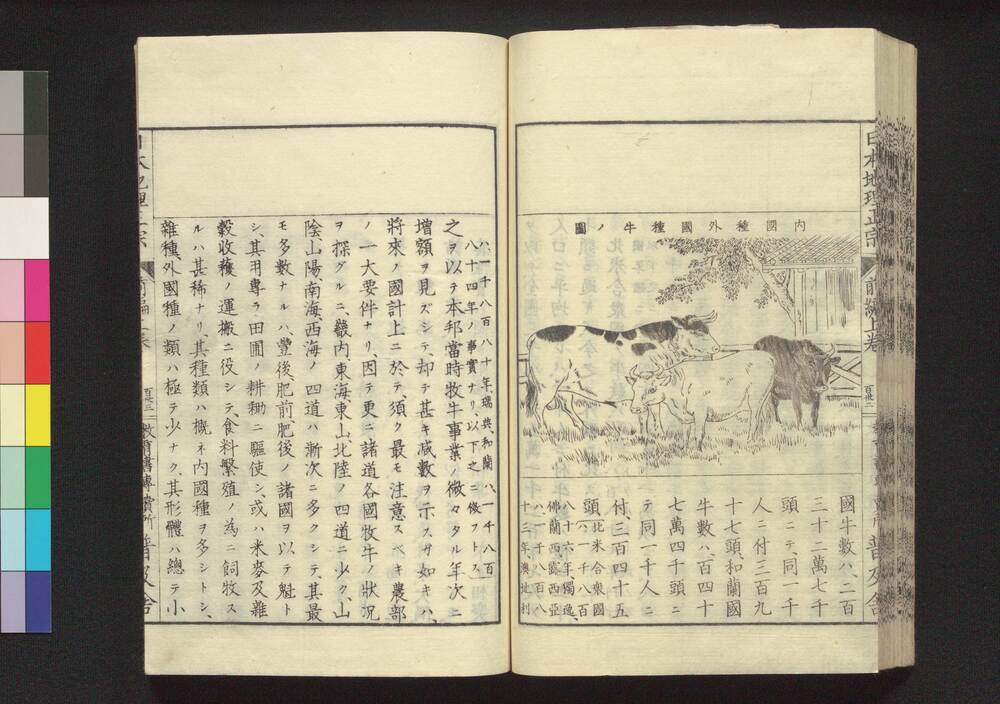 日本地理正宗
前編上卷
百卅二
普及舍
内國種外國種牛ノ圖
國牛數ハ、二百
三十二萬七千
頭ニテ、同一千
人ニ付三百九
十七頭、和蘭國
牛數ハ、百四十
七萬四十頭ニ
テ同一千人ニ
付三百四十五
頭、北米合衆國
ハ、一千八百
八十六年、獨逸、
佛蘭西、露西亞
ハ、一千八百八
十三年、澳地利
ハ、一千八百八十年、瑞典和蘭ハ、一千八百
八十四年ノ事實ナリ、以下之ニ傚フトス、
之ヲ以テ本邦當時牧牛事業ノ微々タル年次ニ
增額ヲ見ズシテ、却テ甚キ减數ヲ示スガ如キハ、
將來ノ國計上ニ於テ須ク最モ注意スベキ農部
ノ一大要件ナリ、因テ更ニ諸道各國牧牛ノ狀況
ヲ探グルニ、畿内、東海、東山、北陸ノ四道ニ少ク、山
陰、山陽、南海、西海ノ四道ハ漸次ニ多クシテ、其最
モ多數ナルハ、豐後、肥前、肥後ノ諸國ヲ以テ魁ト
シ、其用專ラ田圃ノ耕耡ニ驅使シ、或ハ米麥及雜
穀收穫ノ運搬ニ役シテ、食料繁殖ノ爲ニ飼牧ス
ルハ甚稀ナリ、其種類ハ概ネ内國種ヲ多シトシ、
雜種外國種ノ類ハ極テ少ナク、其形體ハ總テ小
日本地理正宗
前編上卷
百卅三
教育書專賣所
普及舍